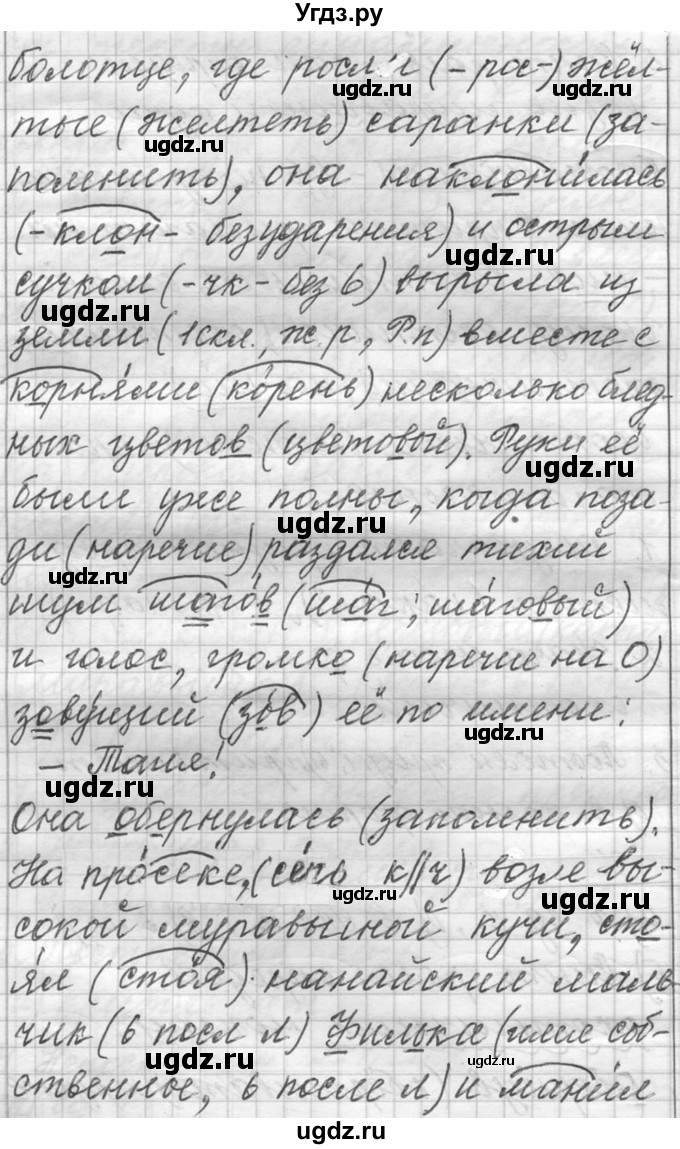 Угдз.ру
болотце, где росли (-рос-) жёл-
тые (желтеть) саранки (за-
помнить), она наклонилась
(-клон- безударения) и острым
сучком (-чк- без ь) вырыла из
земли (1скл., ж.р, Р.п) вместе с
корнями (корень) несколько блед-
ных цветов (цветовой). Руки её
были уже полны, когда поза-
ди (наречие) раздался тихий
шум шагов (шаг; шаговый)
и голос, громко (наречие на О)
зовущий (зов) её по имени:
- Таня!
Она обернулась (запомнить).
На просеке, (сечь к//ч) возле вы-
сокой муравьиной кучи, сто-
ял (стоя) нанайский маль-
чик (ь посл л) Филька (имя соб-
ственное, ь после л) и манил
ugdz.ru